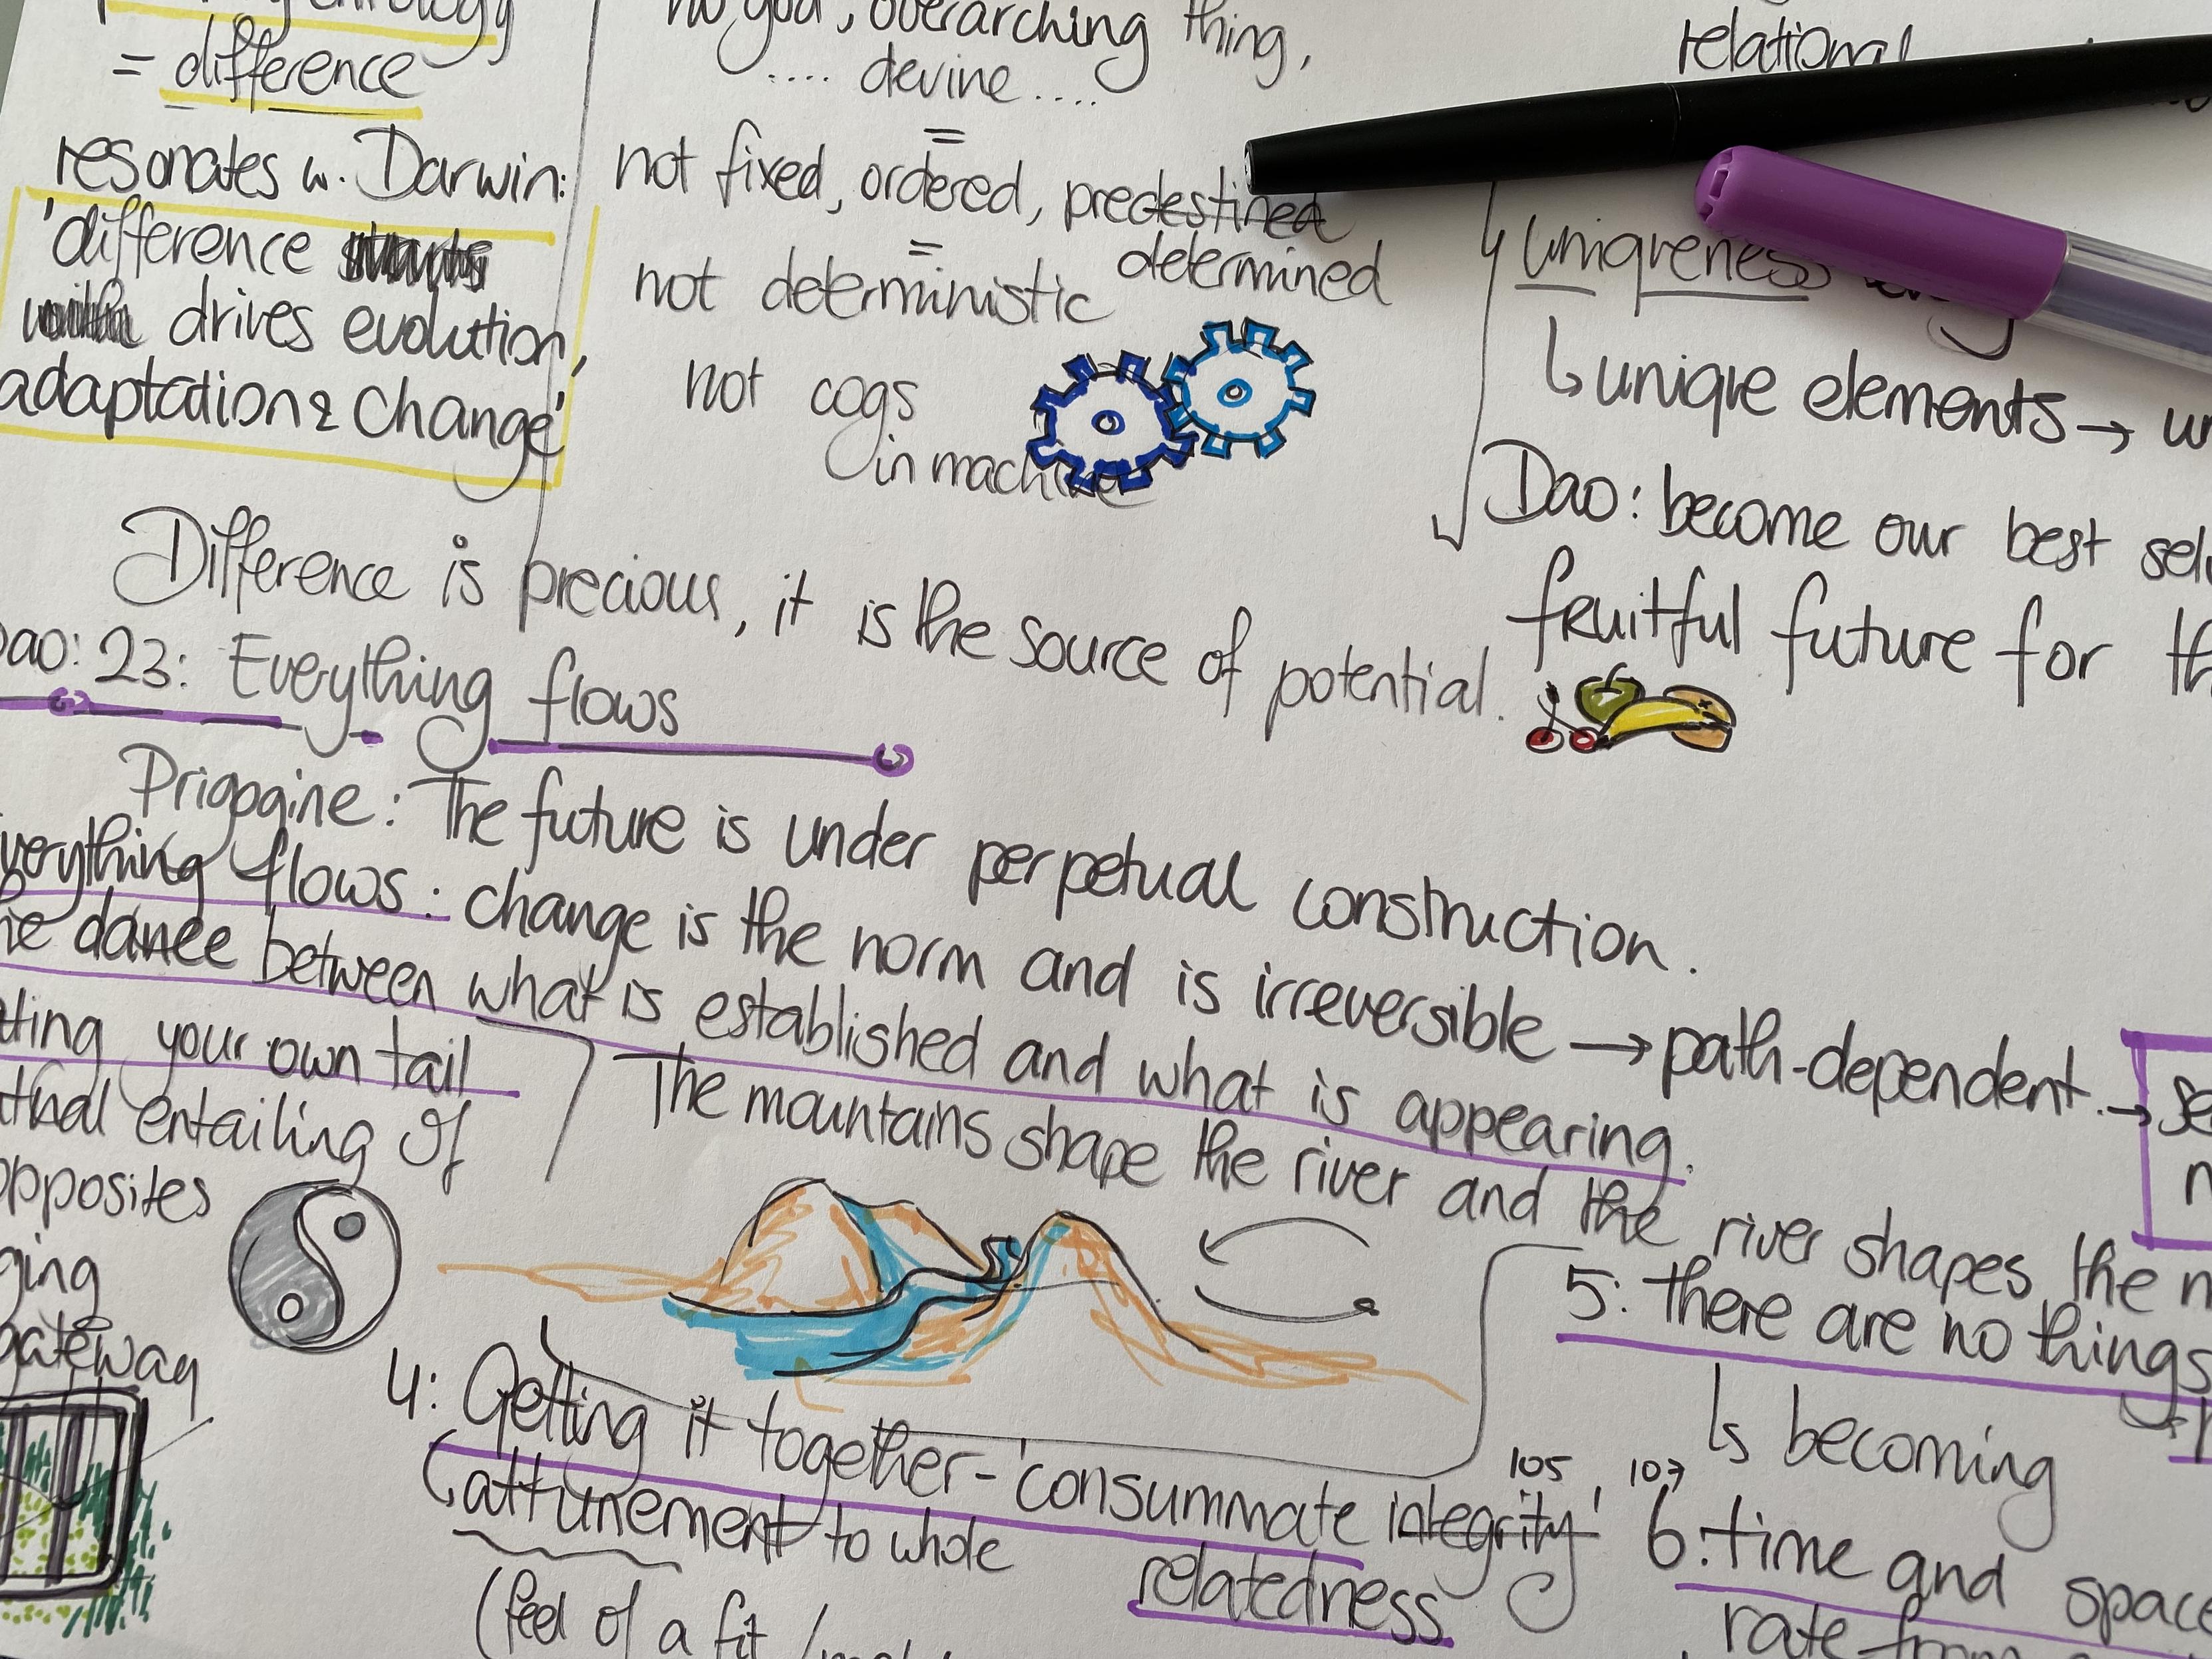 = difference
resonates w. Darwin:
'difference
drives evolution,
adaptation & change'
no god, overarching thing,
.... devine ....
=
not fixed, ordered, predestined
determined
=
not deterministic
not cogs
in machine
relational
uniqueness
↳ unique elements →
Dao: become our best
fruitful future for
Difference is precious, it is the source of potential.
Dao: 23: Everything flows
Prigogine: The future is under perpetual construction.
everything flows: change is the norm and is irreversible → path-dependent. →
dance between what is established and what is appearing.
your own tail
entailing of
opposites
gateway
The mountains shape the river and the river shapes the
4: Getting it together - 'consummate integrity' 105, 107
relatedness
attunement to whole
(feel of a fit /
5: there are no things
↳ becoming
6: time and space
rate from